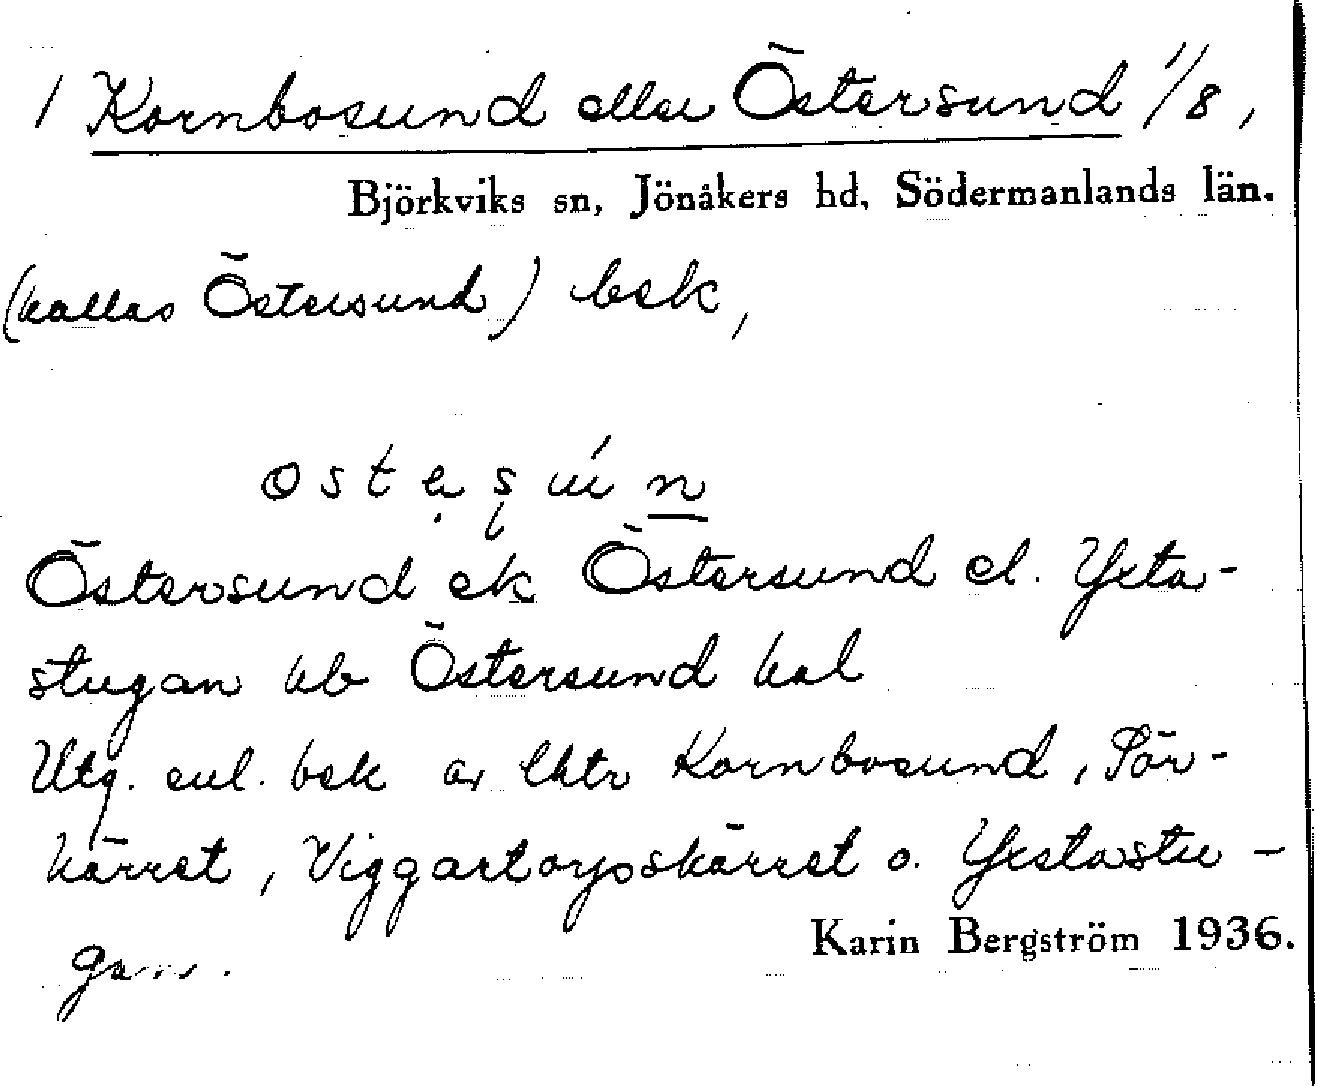 1 Kornbosund eller Östersund 1/8,
Björkviks sn, Jönåkers hd, Södermanlands län.
(kallas Östersund) bsk,
Östersund ek Östersund el. Yxta-
stugan kb Östersund kal
Utg. enl. bsk av lhtr Kornbosund, Tör-
kärret, Viggartorpskärret o. Yxstastu-
gan.
Karin Bergström 1936.